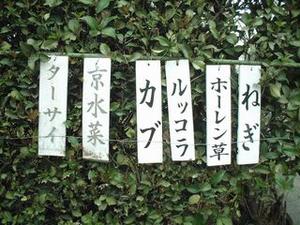 ターサイ
京水菜
カブ
ルッコラ
ホーレン草
ねぎ